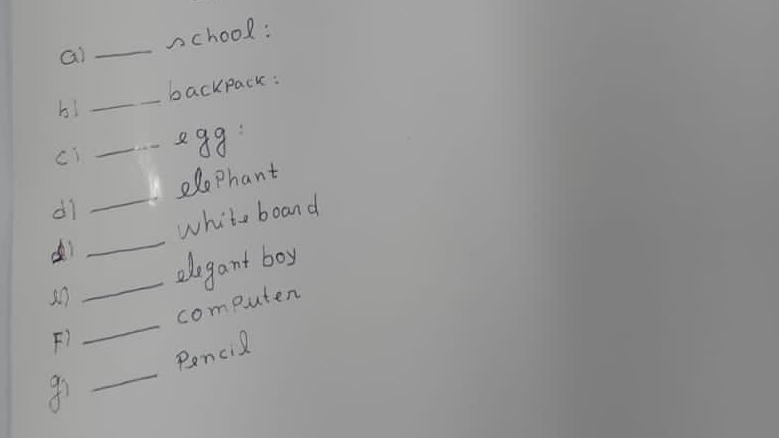 a) ____ school:
b) ____ backpack:
c) ____ egg:
d) ____ elephant
d) ____ whiteboard
e) ____ elegant boy
F) ____ computer
g) ____ Pencil